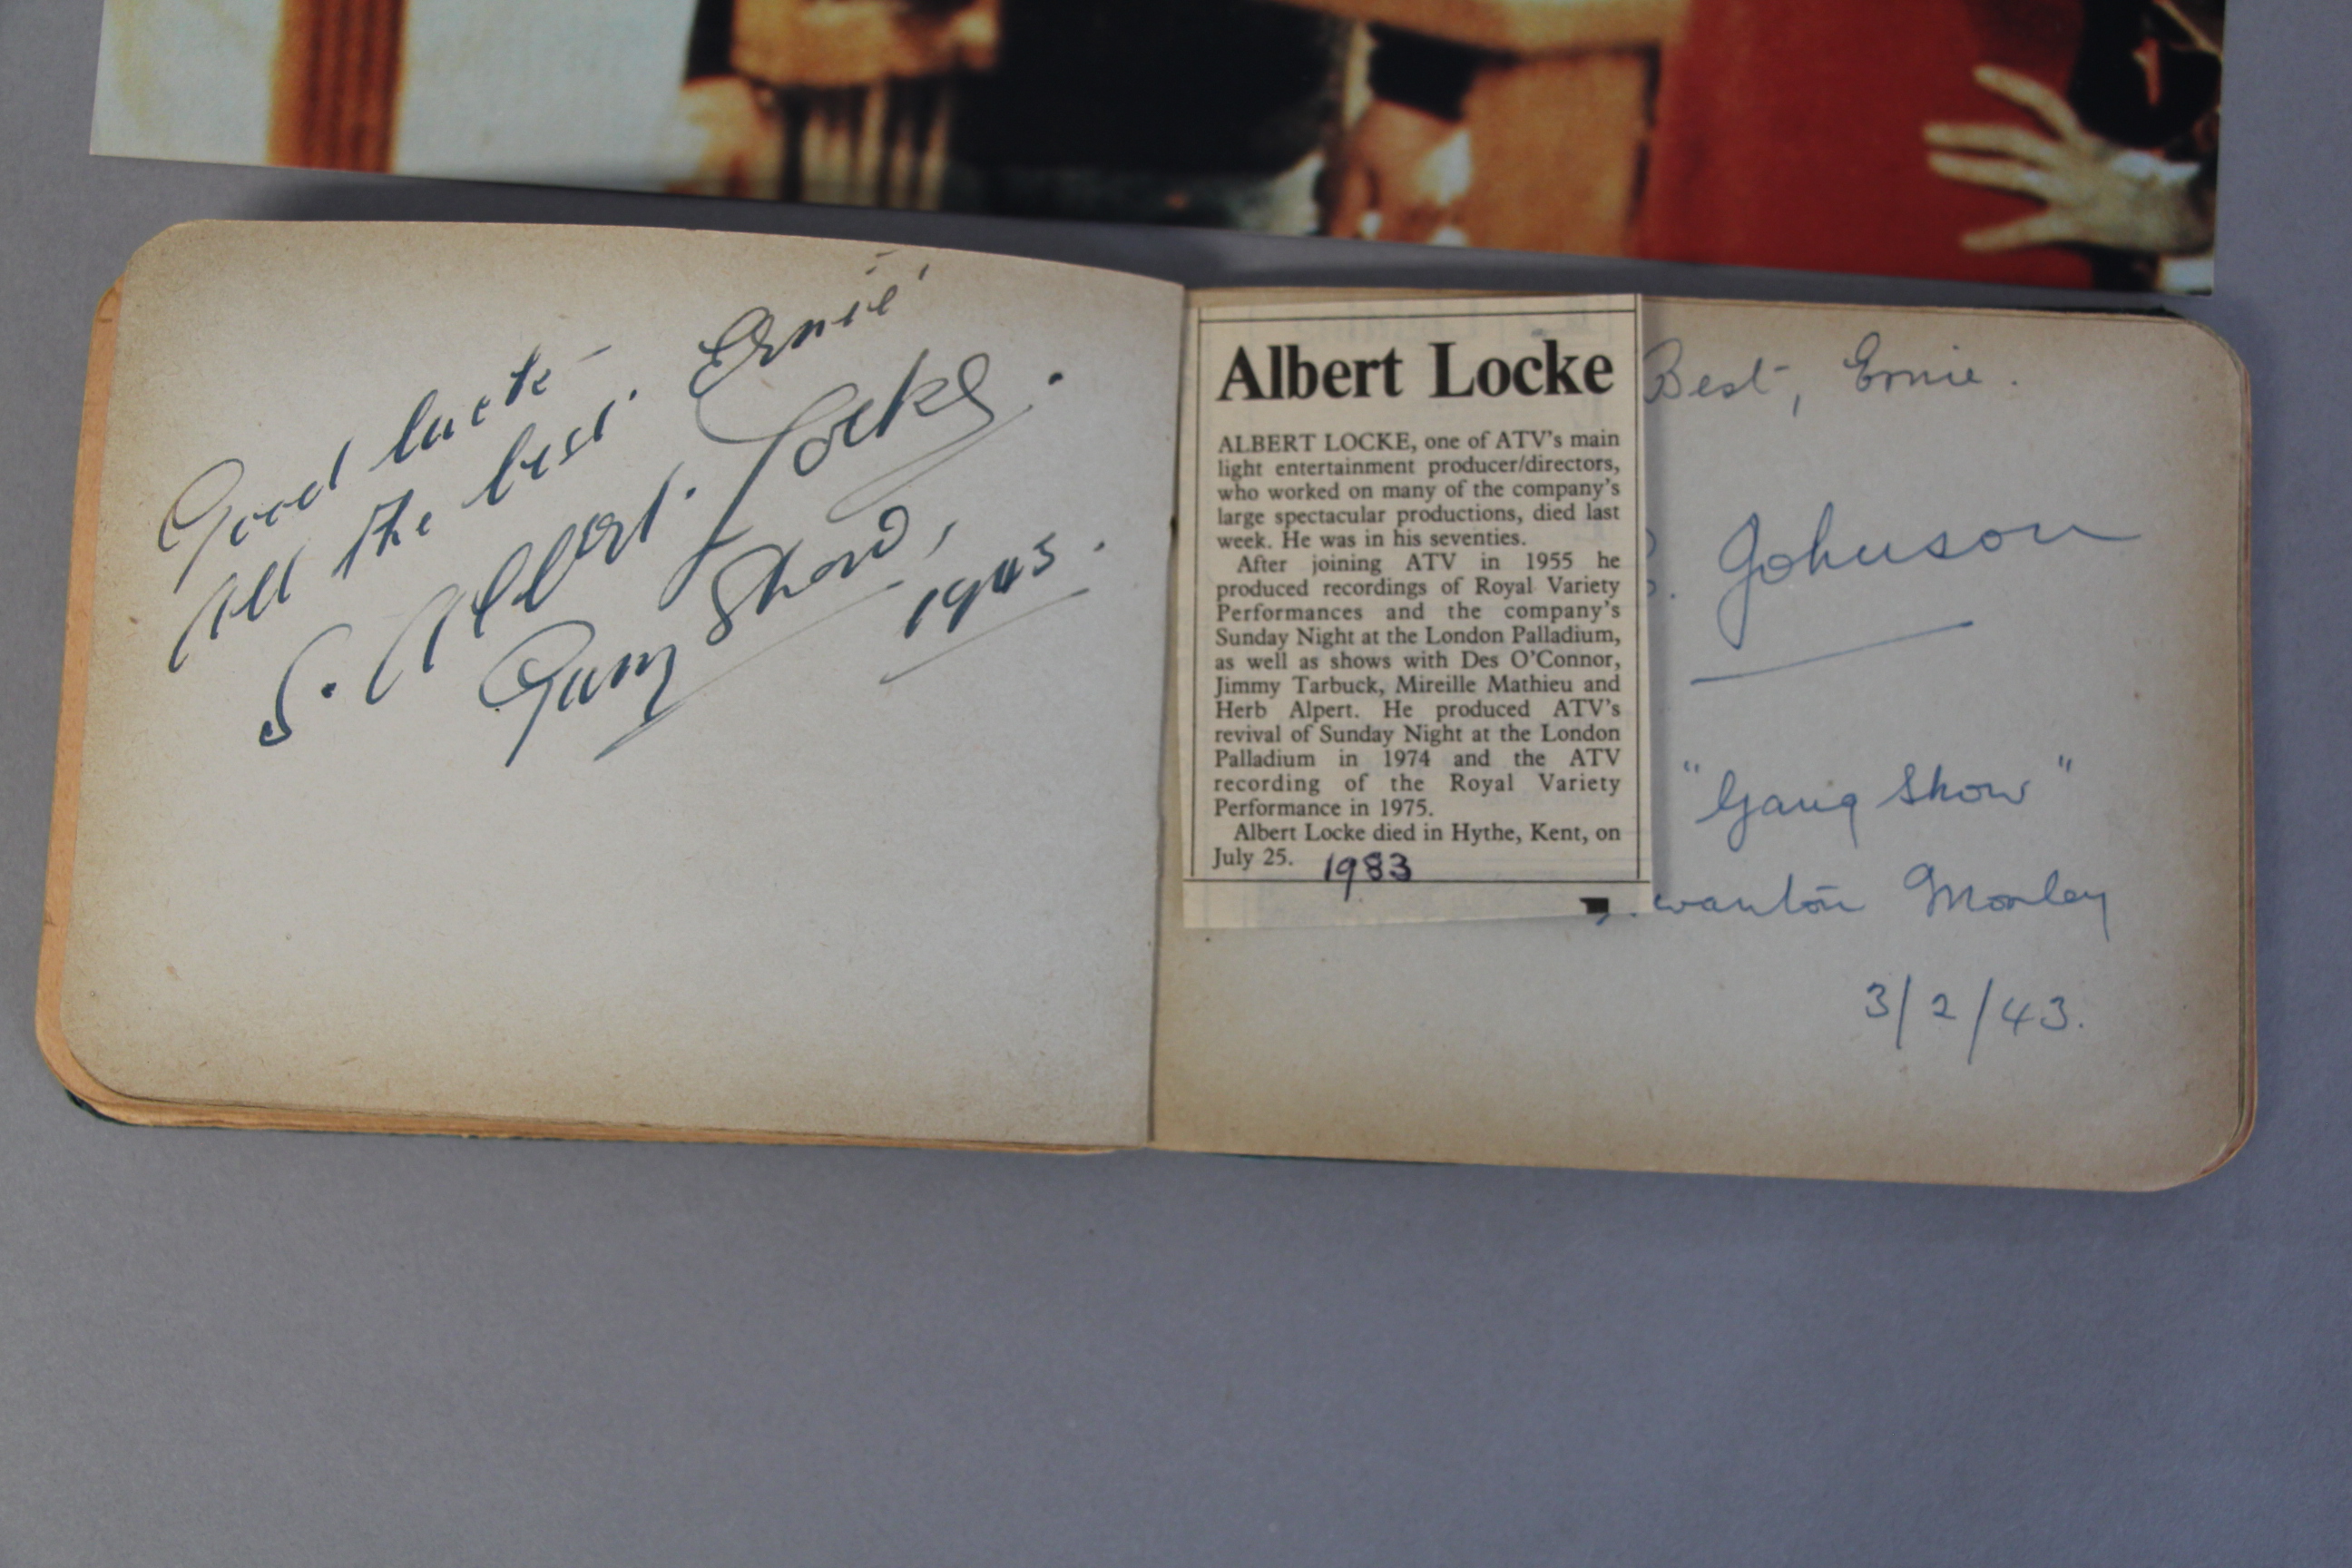 Good luck
All the best. Ernie
S. Albert. Locke.
Gang Show,
1943.
Albert Locke
ALBERT LOCKE, one of ATV's main
light entertainment producer/directors,
who worked on many of the company's
large spectacular productions, died last
week. He was in his seventies.
After joining ATV in 1955 he
produced recordings of Royal Variety
Performances and the company's
Sunday Night at the London Palladium,
as well as shows with Des O'Connor,
Jimmy Tarbuck, Mireille Mathieu and
Herb Alpert. He produced ATV's
revival of Sunday Night at the London
Palladium in 1974 and the ATV
recording of the Royal Variety
Performance in 1975.
Albert Locke died in Hythe, Kent, on
July 25. 1983
Best, Ernie.
Johnson
"Gang Show"
Swanton Morley
3/2/43.